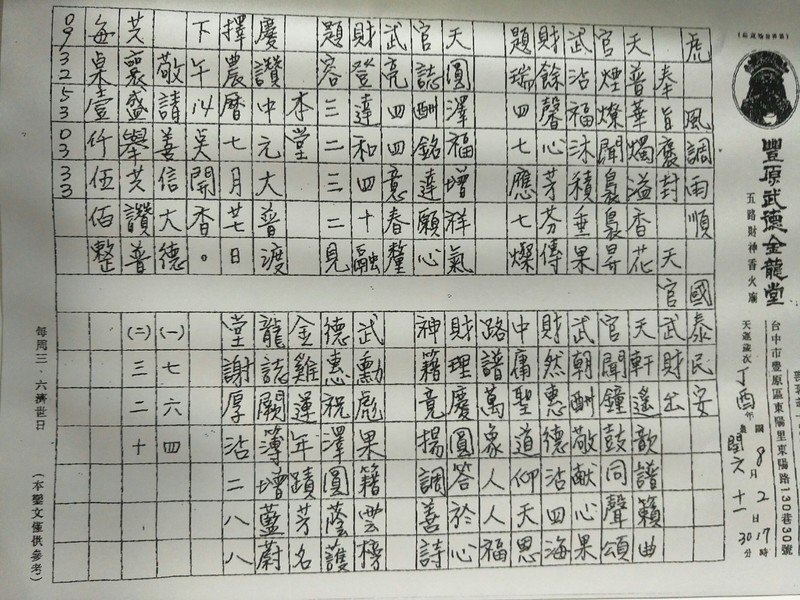 豐原武德金龍堂
五路財神香火廟
台中市豐原區東陽里東陽路130巷30號
天運歲次丁酉年 國 8月2日17時30分
農 閏六十一
虎 風調雨順 國泰民安
奉旨褒封 天官武財出
天普華燭溢香花
官煙燦聞裊裊昇
武沾福沐積垂果
財餘馨心芳芬傳
題瑞四七應七燦
天圓澤福增祥氣
官誌酬銘達願心
武亮四四意春釐
財登達和四十融
題容三二三二見
本堂
慶讚中元大普渡
擇農曆七月廿七日
下午14吳開香。
敬請善信大德
共襄盛舉共讚普
每桌壹仟伍佰整
09 32 53 03 33
天軒遙歌譜籟曲
官聞鐘鼓同聲頌
武朝酬敬献心果
財然惠德沾四海
中庸聖道仰天恩
路譜萬象人人福
財理慶圓答於心
神籍竟揚調善詩
武勳彪果籍雲榜
德惠祝澤圓蔭護
金雞運年蹟芳名
龍誌願簿增藍蔚
堂謝厚沾二八八
(一)七六四
(二)三二十
每周三、六濟世日
(本鸞文僅供參考)